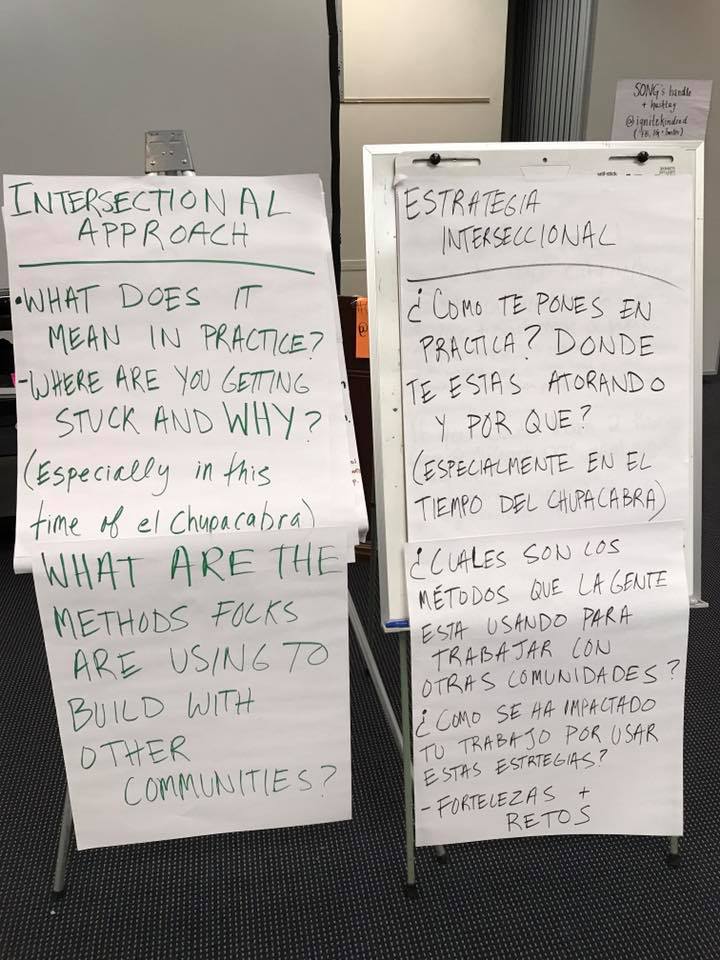 INTERSECTIONAL
APPROACH
•WHAT DOES IT
MEAN IN PRACTICE?
-WHERE ARE YOU GETTING
STUCK AND WHY?
(Especially in this
time of el Chupacabra)
WHAT ARE THE
METHODS FOLKS
ARE USING TO
BUILD WITH
OTHER
COMMUNITIES?
ESTRATEGIA
INTERSECCIONAL
¿COMO TE PONES EN
PRACTICA? DONDE
TE ESTAS ATORANDO
Y POR QUE?
(ESPECIALMENTE EN EL
TIEMPO DEL CHUPACABRA)
¿CUALES SON LOS
MÉTODOS QUE LA GENTE
ESTA USANDO PARA
TRABAJAR CON
OTRAS COMUNIDADES?
¿COMO SE HA IMPACTADO
TU TRABAJO POR USAR
ESTAS ESTRTEGIAS?
- FORTELEZAS +
RETOS
SONG's handle
+ hashtag
@ignitekindred